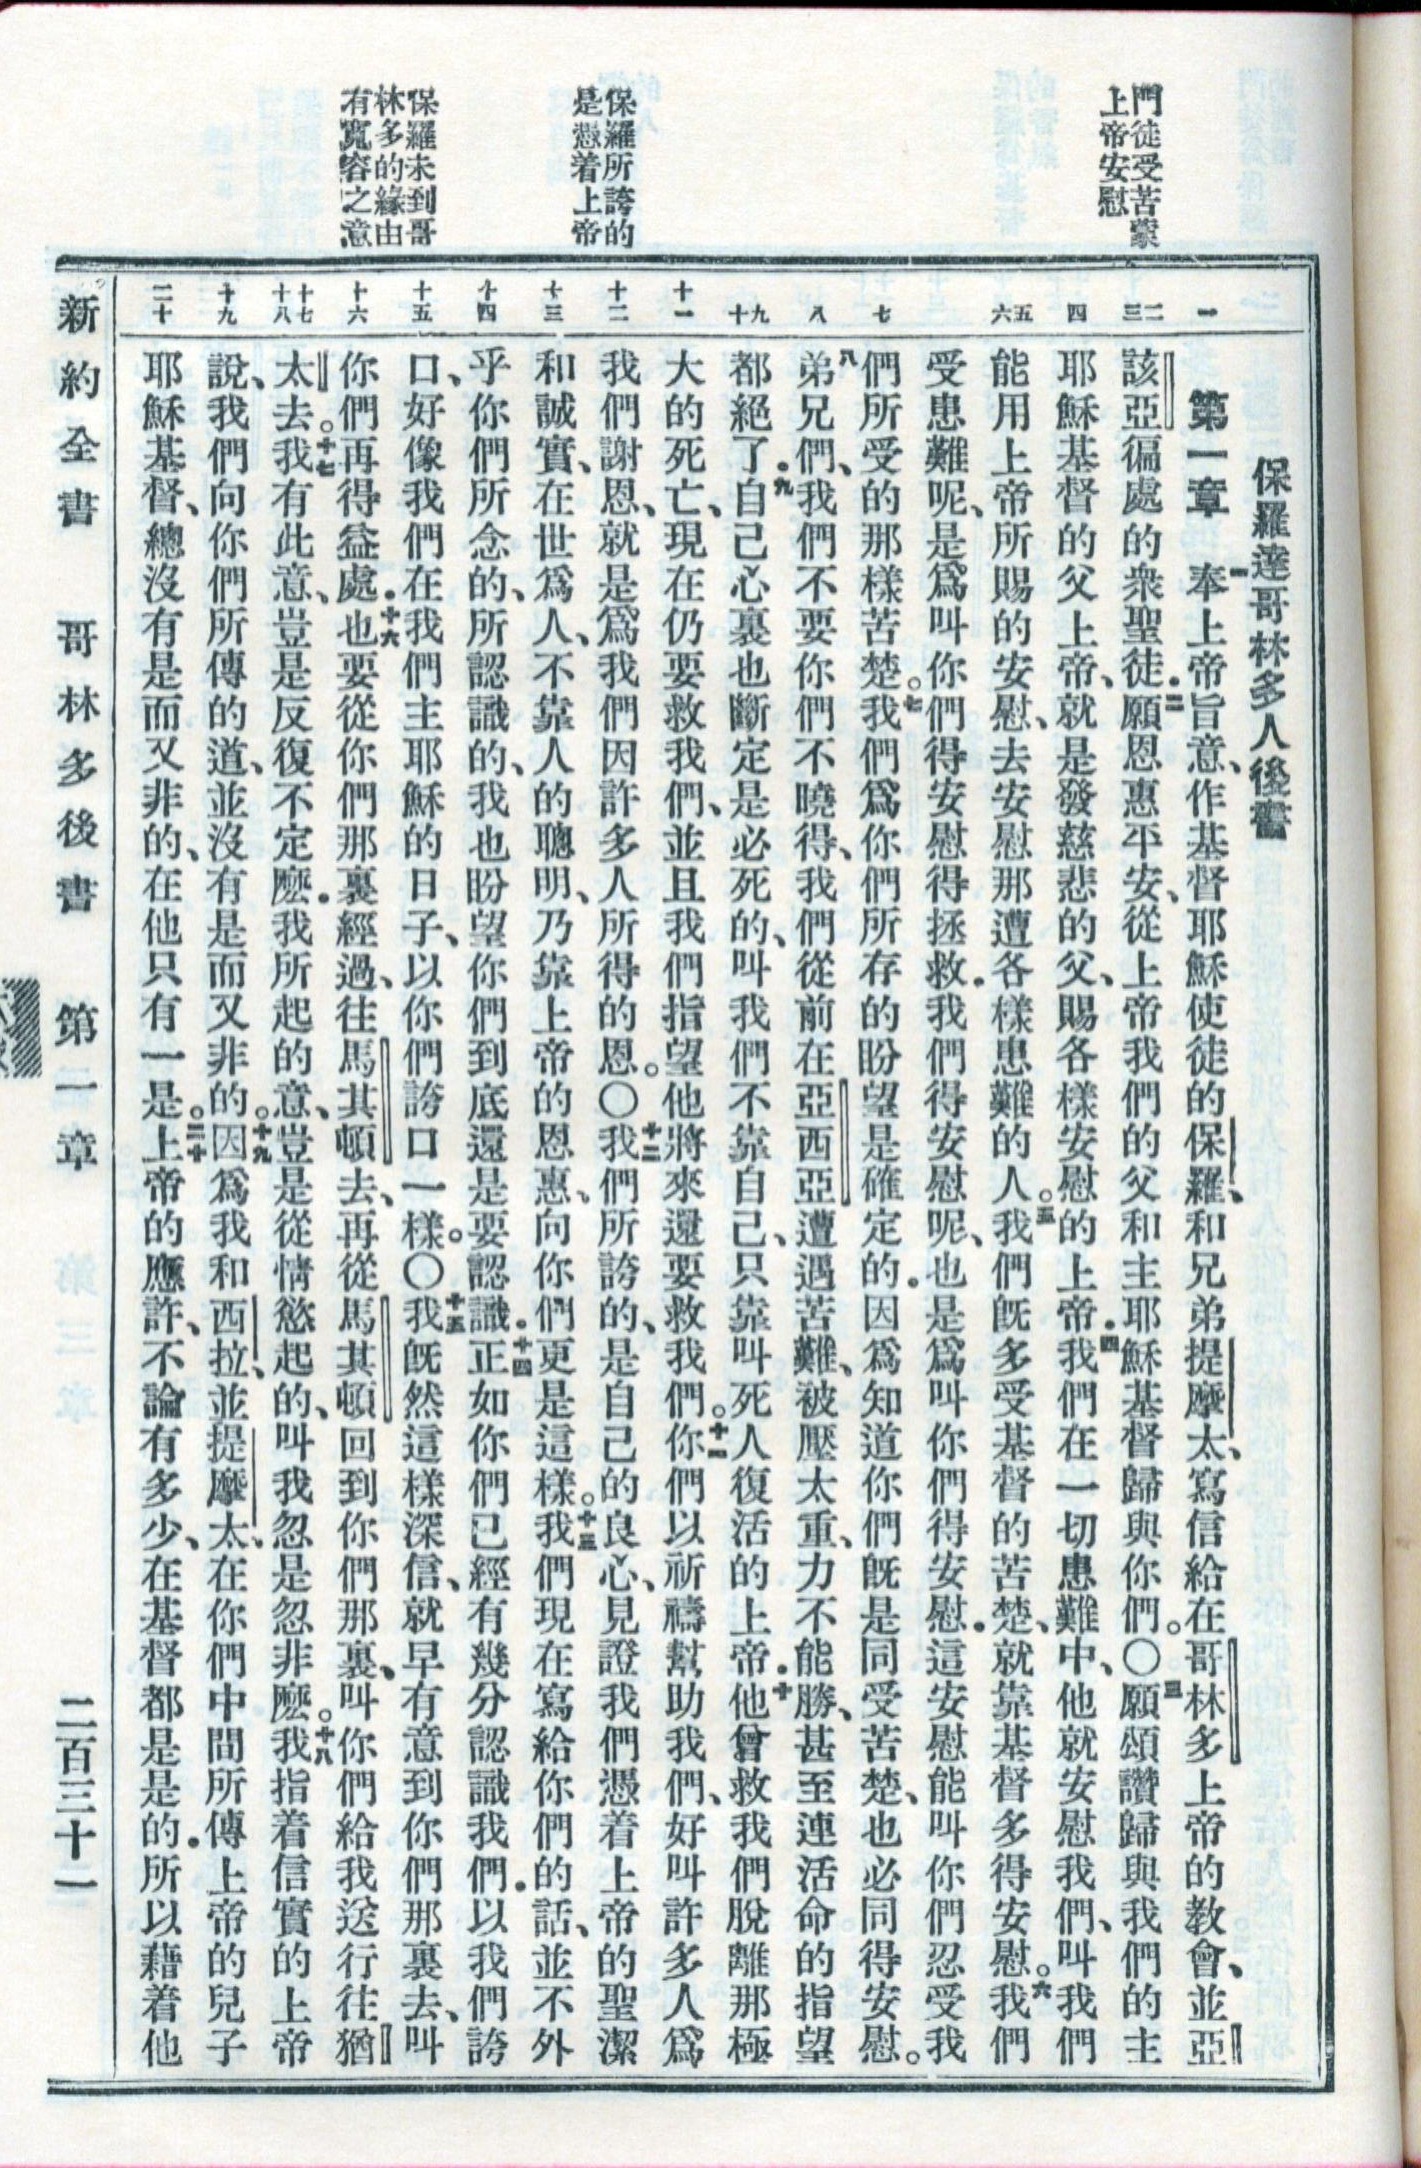 門徒受苦蒙
上帝安慰
保羅所誇的
是憑着上帝
保羅未到哥
林多的緣由
有寬容之意
一
二
三
四
五
六
七
八
九
十
十一
十二
十三
十四
十五
十六
十七
十八
十九
二十
保羅達哥林多人後書
第一章 一奉上帝旨意、作基督耶穌使徒的保羅、和兄弟提摩太、寫信給在哥林多上帝的教會、並亞
該亞徧處的衆聖徒.二願恩惠平安、從上帝我們的父和主耶穌基督歸與你們。〇三願頌讚歸與我們的主
耶穌基督的父上帝、就是發慈悲的父、賜各樣安慰的上帝.四我們在一切患難中、他就安慰我們、叫我們
能用上帝所賜的安慰、去安慰那遭各樣患難的人。五我們旣多受基督的苦楚、就靠基督多得安慰。六我們
受患難呢、是爲叫你們得安慰得拯救.我們得安慰呢、也是爲叫你們得安慰.這安慰能叫你們忍受我
們所受的那樣苦楚。七我們爲你們所存的盼望是確定的.因爲知道你們旣是同受苦楚、也必同得安慰。
八弟兄們、我們不要你們不曉得、我們從前在亞西亞遭遇苦難、被壓太重、力不能勝、甚至連活命的指望
都絕了.九自己心裏也斷定是必死的、叫我們不靠自己、只靠叫死人復活的上帝.十他曾救我們脫離那極
大的死亡、現在仍要救我們、並且我們指望他將來還要救我們。十一你們以祈禱幫助我們、好叫許多人爲
我們謝恩、就是爲我們因許多人所得的恩。〇十二我們所誇的、是自己的良心、見證我們憑着上帝的聖潔
和誠實、在世爲人、不靠人的聰明、乃靠上帝的恩惠、向你們更是這樣。十三我們現在寫給你們的話、並不外
乎你們所念的、所認識的、我也盼望你們到底還是要認識.十四正如你們已經有幾分認識我們.以我們誇
口、好像我們在我們主耶穌的日子、以你們誇口一樣。〇十五我旣然這樣深信、就早有意到你們那裏去、叫
你們再得益處.十六也要從你們那裏經過、往馬其頓去、再從馬其頓回到你們那裏、叫你們給我送行往猶
太去。十七我有此意、豈是反復不定麽.我所起的意、豈是從情慾起的、叫我忽是忽非麽。十八我指着信實的上帝
說、我們向你們所傳的道、並沒有是而又非的。十九因爲我和西拉、並提摩太、在你們中間所傳上帝的兒子
耶穌基督、總沒有是而又非的、在他只有一是。二十上帝的應許、不論有多少、在基督都是是的.所以藉着他
新約全書 哥林多後書 第一章 二百三十二